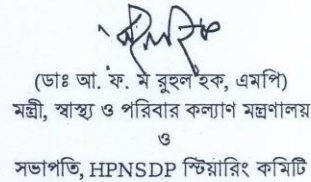 (ডাঃ আ. ফ. ম রুহুল হক, এমপি)
মন্ত্রী, স্বাস্থ্য ও পরিবার কল্যাণ মন্ত্রণালয়
ও
সভাপতি, HPNSDP স্টিয়ারিং কমিটি